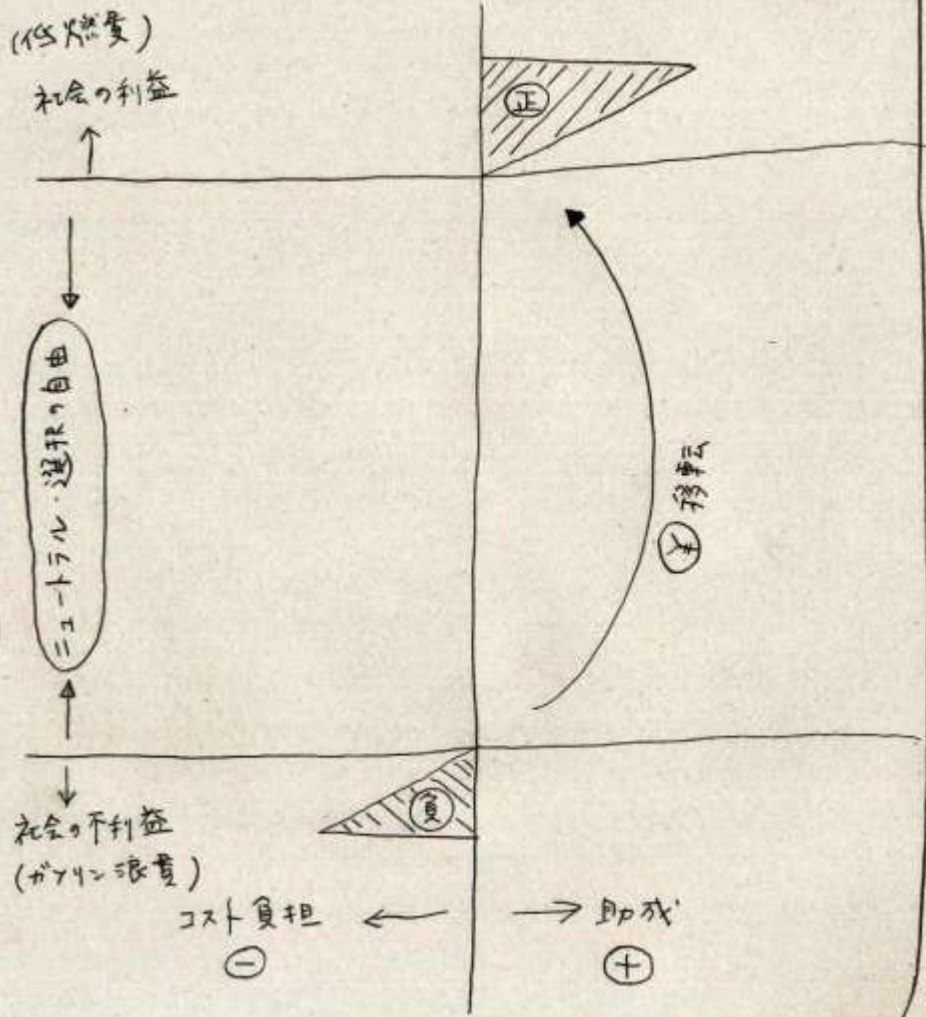 (低燃費)
社会の利益
正
ニュートラル・選択の自由
移転
負
社会の不利益
(ガソリン浪費)
コスト負担
助成
−
+